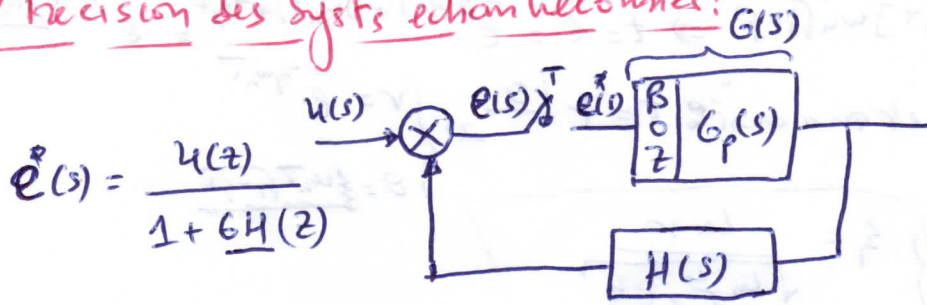 Précision des systs échantillonnés:
G(s)
u(s)
e(s) T e*(s) B O Z Gp(s)
e*(s) = u(z) / 1 + GH(z)
H(s)